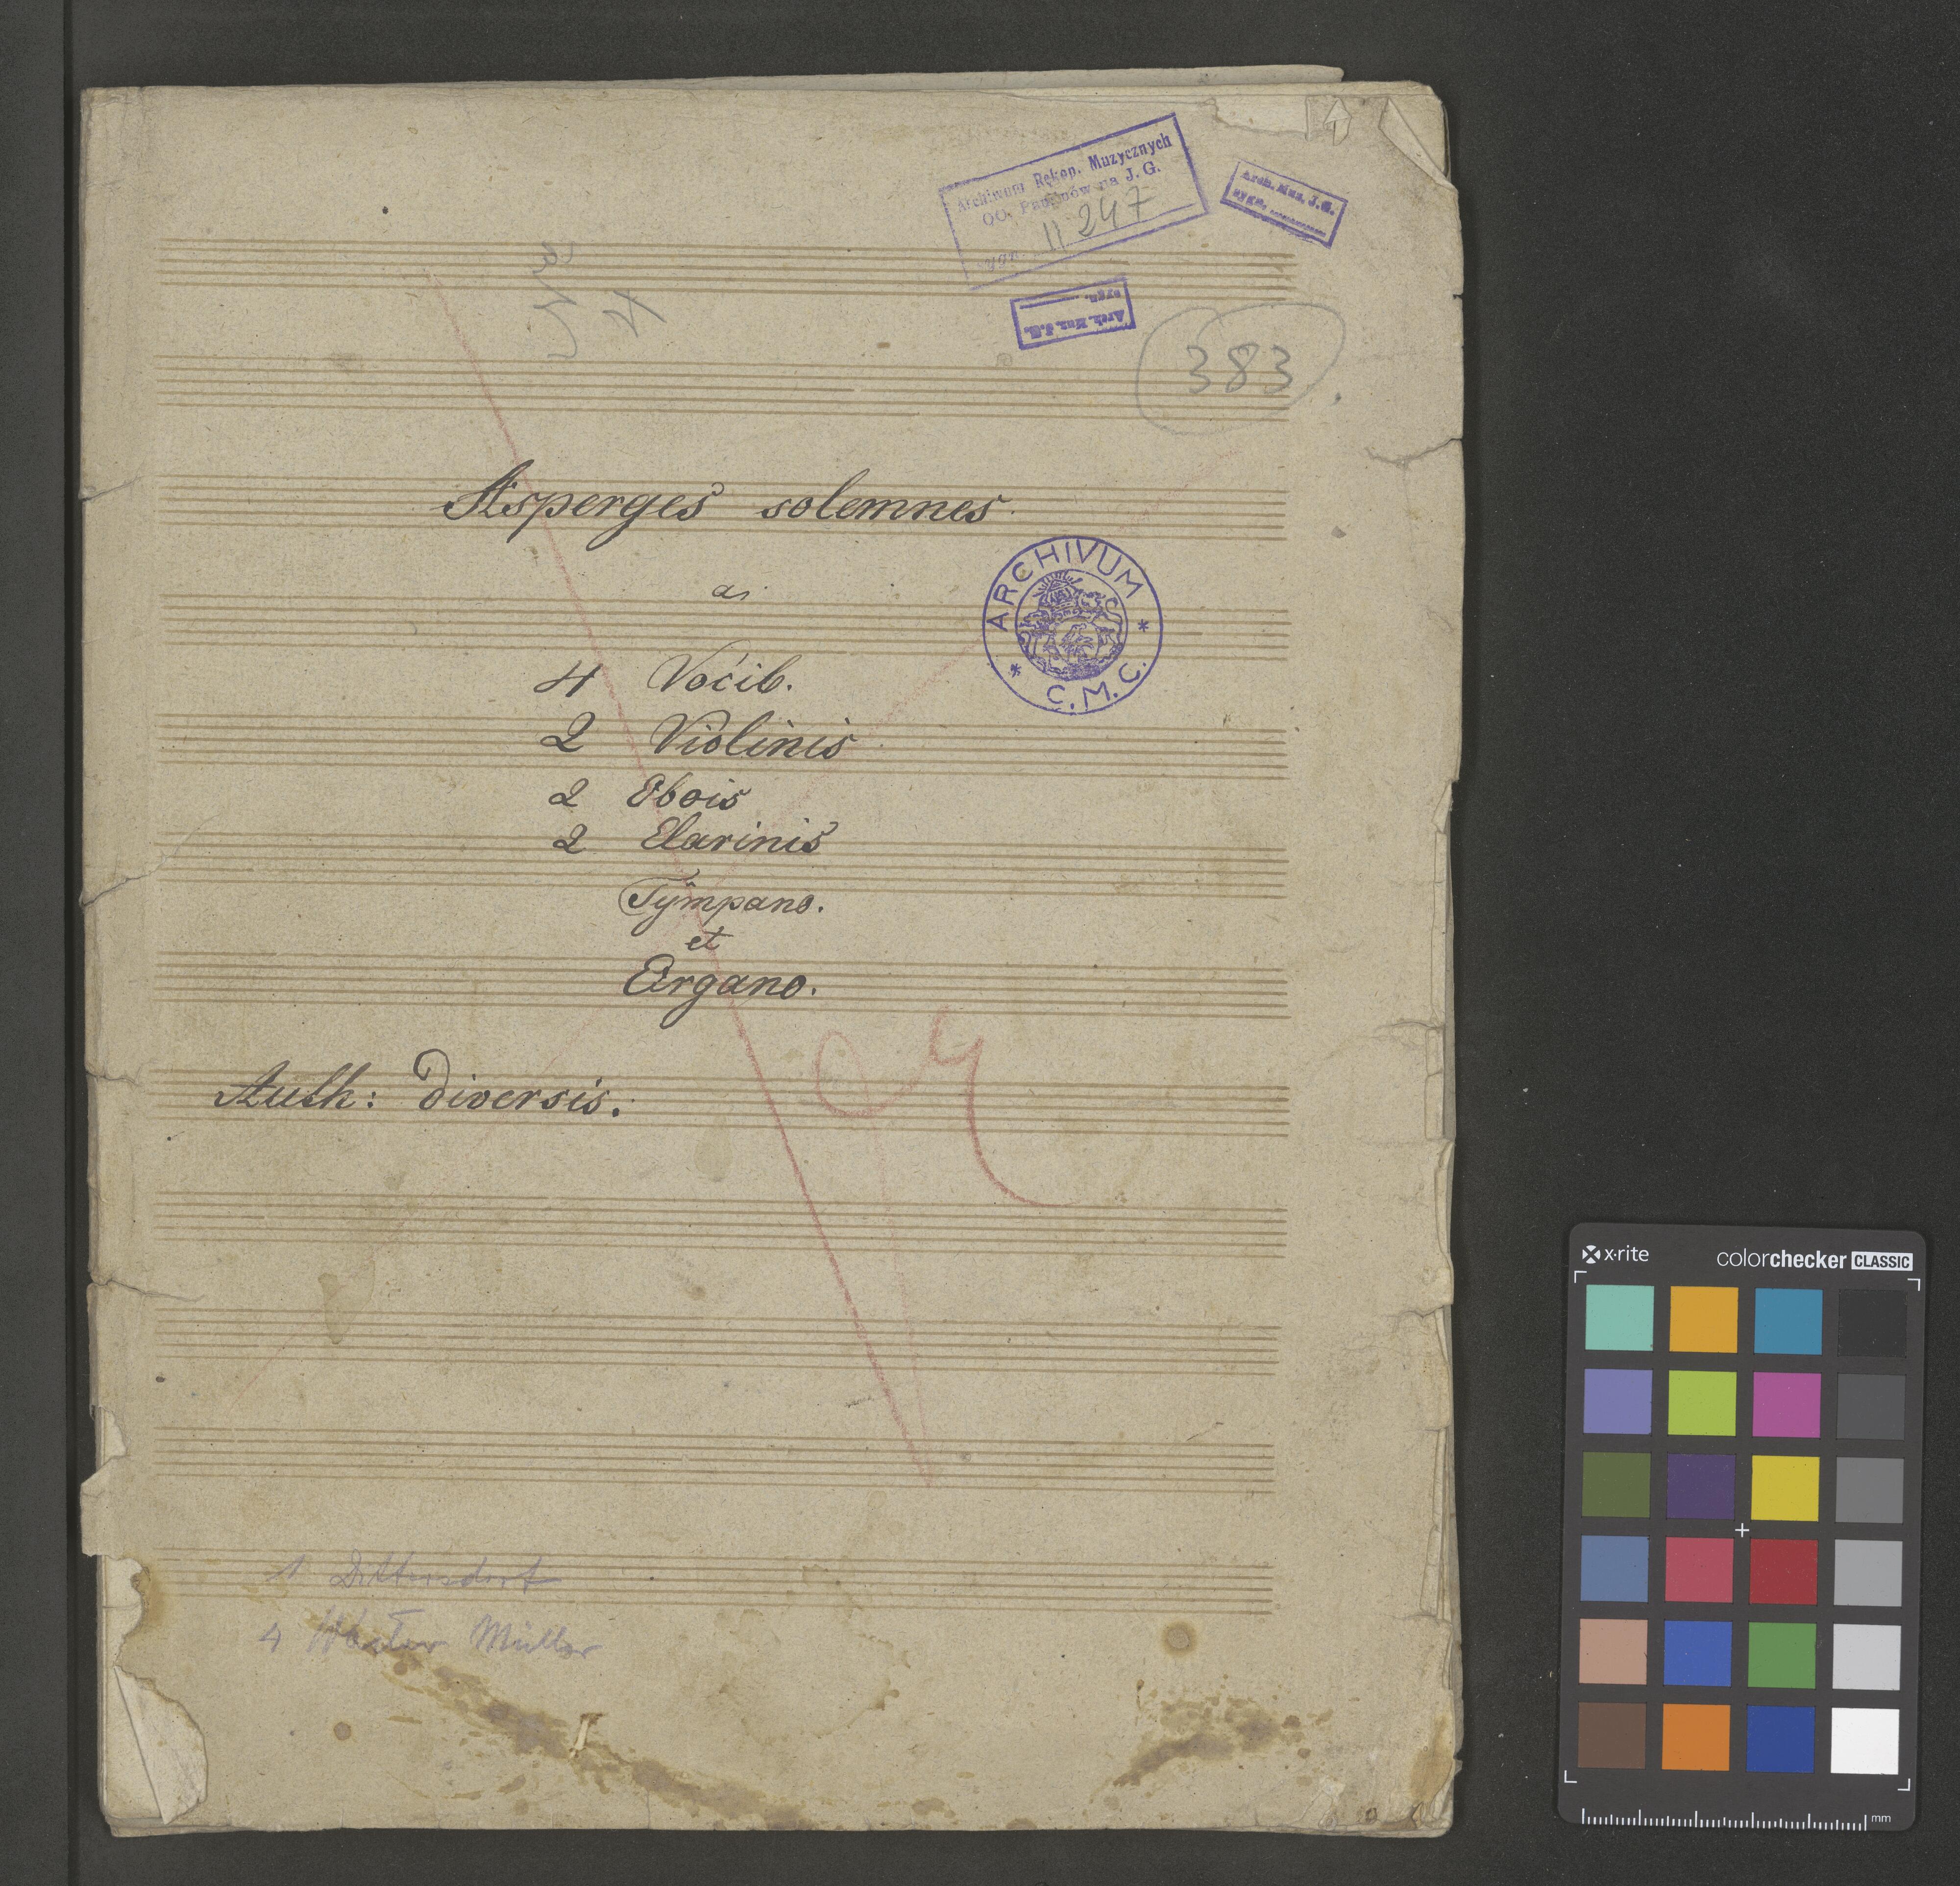 Archiwum Rękop. Muzycznych
OO. Paulinów na J. G.
sygn. II 247
Arch. Muz. J. G.
sygn.
Arch. Muz. J. G.
sygn.
383
Asperges solemnes
a
4 Vocib.
2 Violinis
2 Obois
2 Clarinis
Tympano.
et
Organo.
Auth: Diversis.
ARCHIVUM
* C. M. C. *
1 Dittersdorf
4 Müller
x-rite
colorchecker CLASSIC
mm